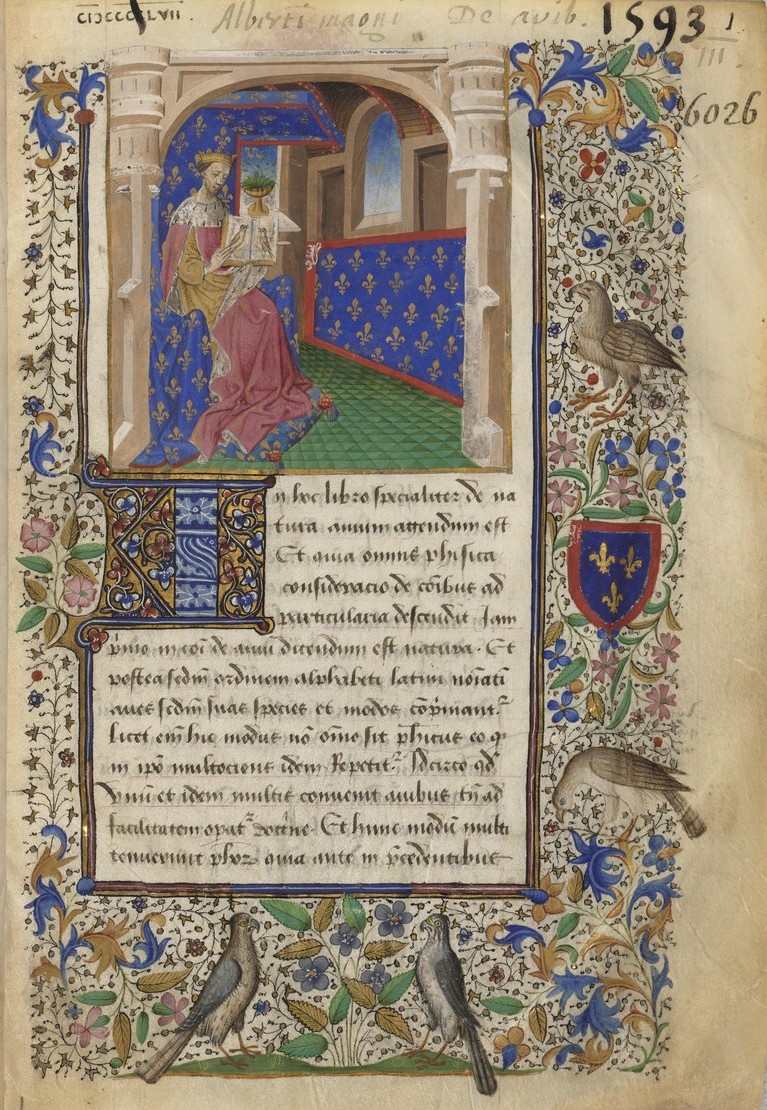 CIↃCCCCLVII.
Alberti magni De avib.
1593
1
III
6026
In hoc libro specialiter de na
tura auium agendum est
Et quia omnis phisica
consideracio de cōibus ad
particularia descendit Iam
p̄mo in cōi de auiū dicendum est natura. Et
postea sedm̄ ordinem alphabeti latini noīatī
aues sedm̄ suas species et modos
licet em̄ hic modus nō om̄o sit ph̄icus eo ꝙ
in ip̄o multociens idem Repetit᷑. Idcirco qd̄
vnū et idem multis conuenit auibus tn̄ ad
facilitatem opat᷑ doct͞ne. Et hunc modū multi
tenuerunt ph̄oꝝ quia ante in p̄cedentibus